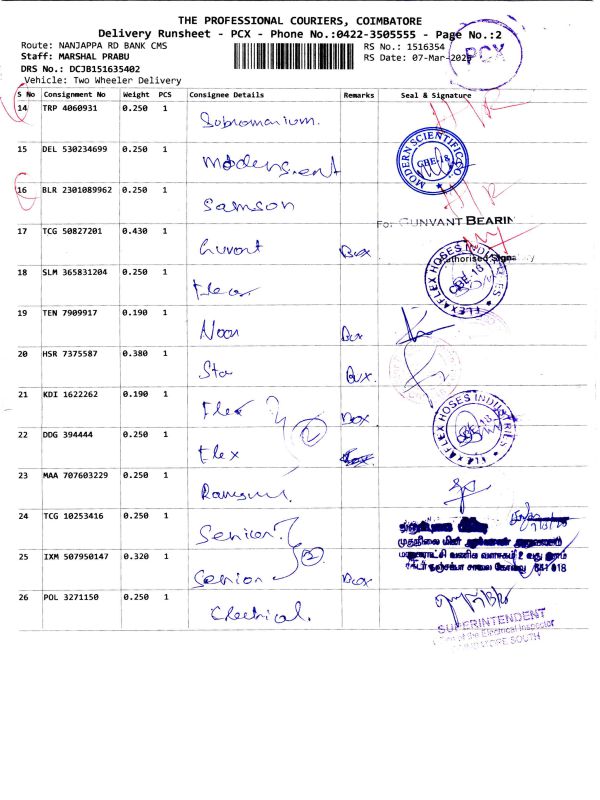 THE PROFESSIONAL COURIERS, COIMBATORE
Delivery Runsheet - PCX - Phone No.:0422-3505555 - Page No.:2
Route: NANJAPPA RD BANK CMS
RS No.: 1516354
PCX
Staff: MARSHAL PRABU
RS Date: 07-Mar-2025
DRS No.: DCJB151635402
Vehicle: Two Wheeler Delivery
S No Consignment No Weight PCS Consignee Details Remarks Seal & Signature
14 TRP 4060931 0.250 1
15 DEL 530234699 0.250 1
MODERN SCIENTIFIC CO. CBE-18
16 BLR 2301089962 0.250 1 Samson
For GUNVANT BEARIN
17 TCG 50827201 0.430 1 Box
Authorised Signatory
18 SLM 365831204 0.250 1
FLEXAFLEX HOSES INDUSTRIES CBE-18
19 TEN 7909917 0.190 1 Noor Box
20 HSR 7375587 0.380 1 Star Box
21 KDI 1622262 0.190 1 Flex Box
2
FLEXAFLEX HOSES INDUSTRIES CBE-18
22 DDG 394444 0.250 1 Flex
23 MAA 707603229 0.250 1
24 TCG 10253416 0.250 1 Senior
2
25 IXM 507950147 0.320 1 Senior Box
641 018
26 POL 3271150 0.250 1 Electrical
SUPERINTENDENT
of the Electrical Inspector
COIMBATORE SOUTH